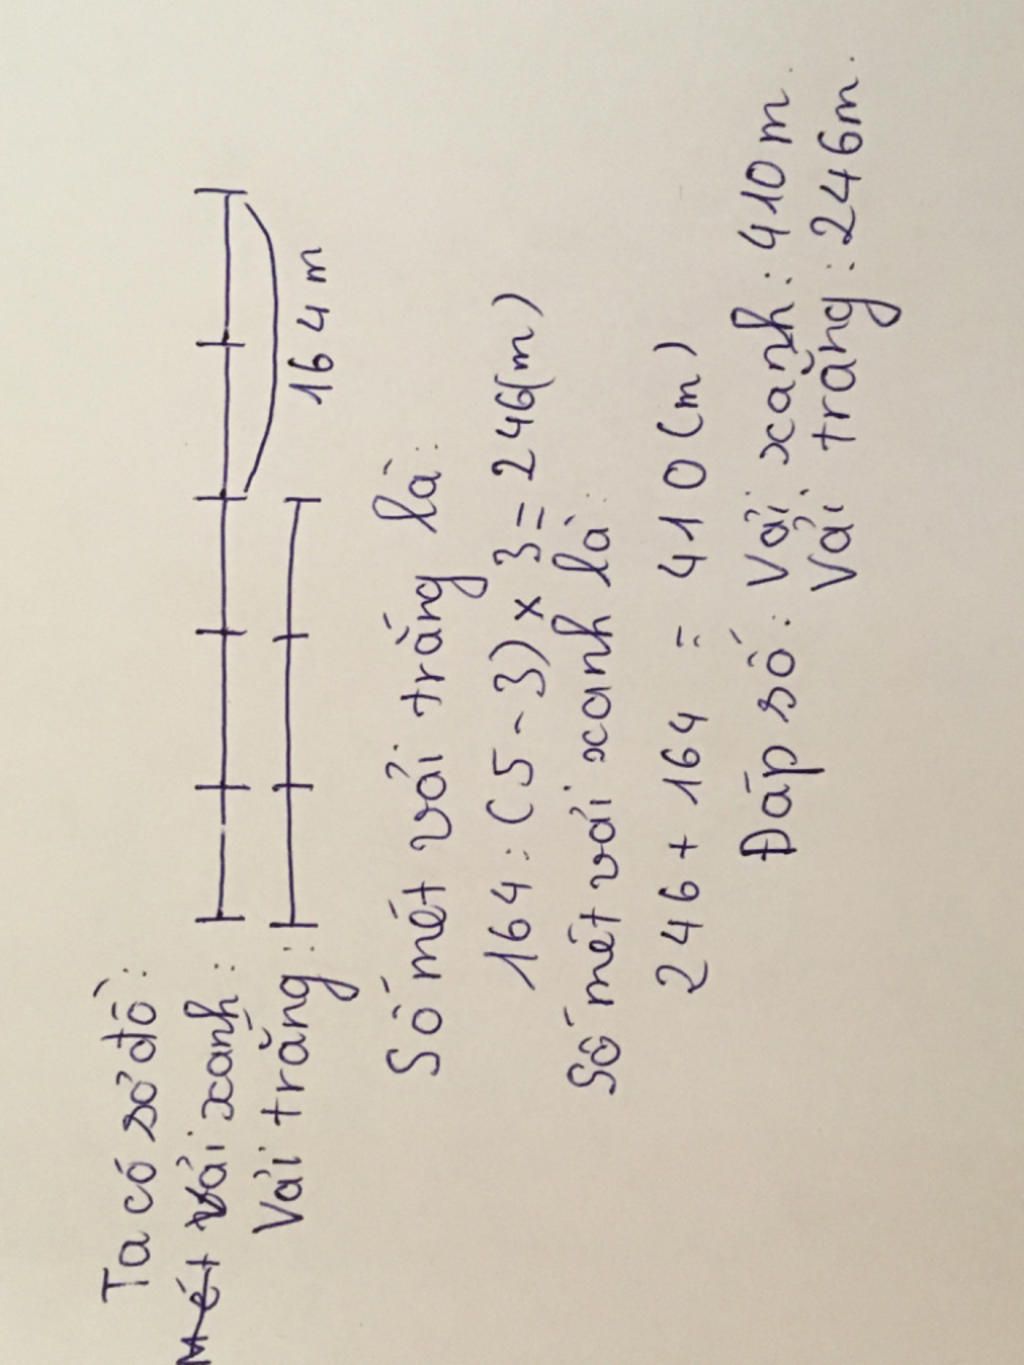 Ta có sơ đồ:
Mét vải xanh:
Vải trắng:
164 m
Số mét vải trắng là:
164 : (5 - 3) x 3 = 246(m)
Số mét vải xanh là:
246 + 164 = 410 (m)
Đáp số: Vải xanh: 410 m
Vải trắng: 246m.